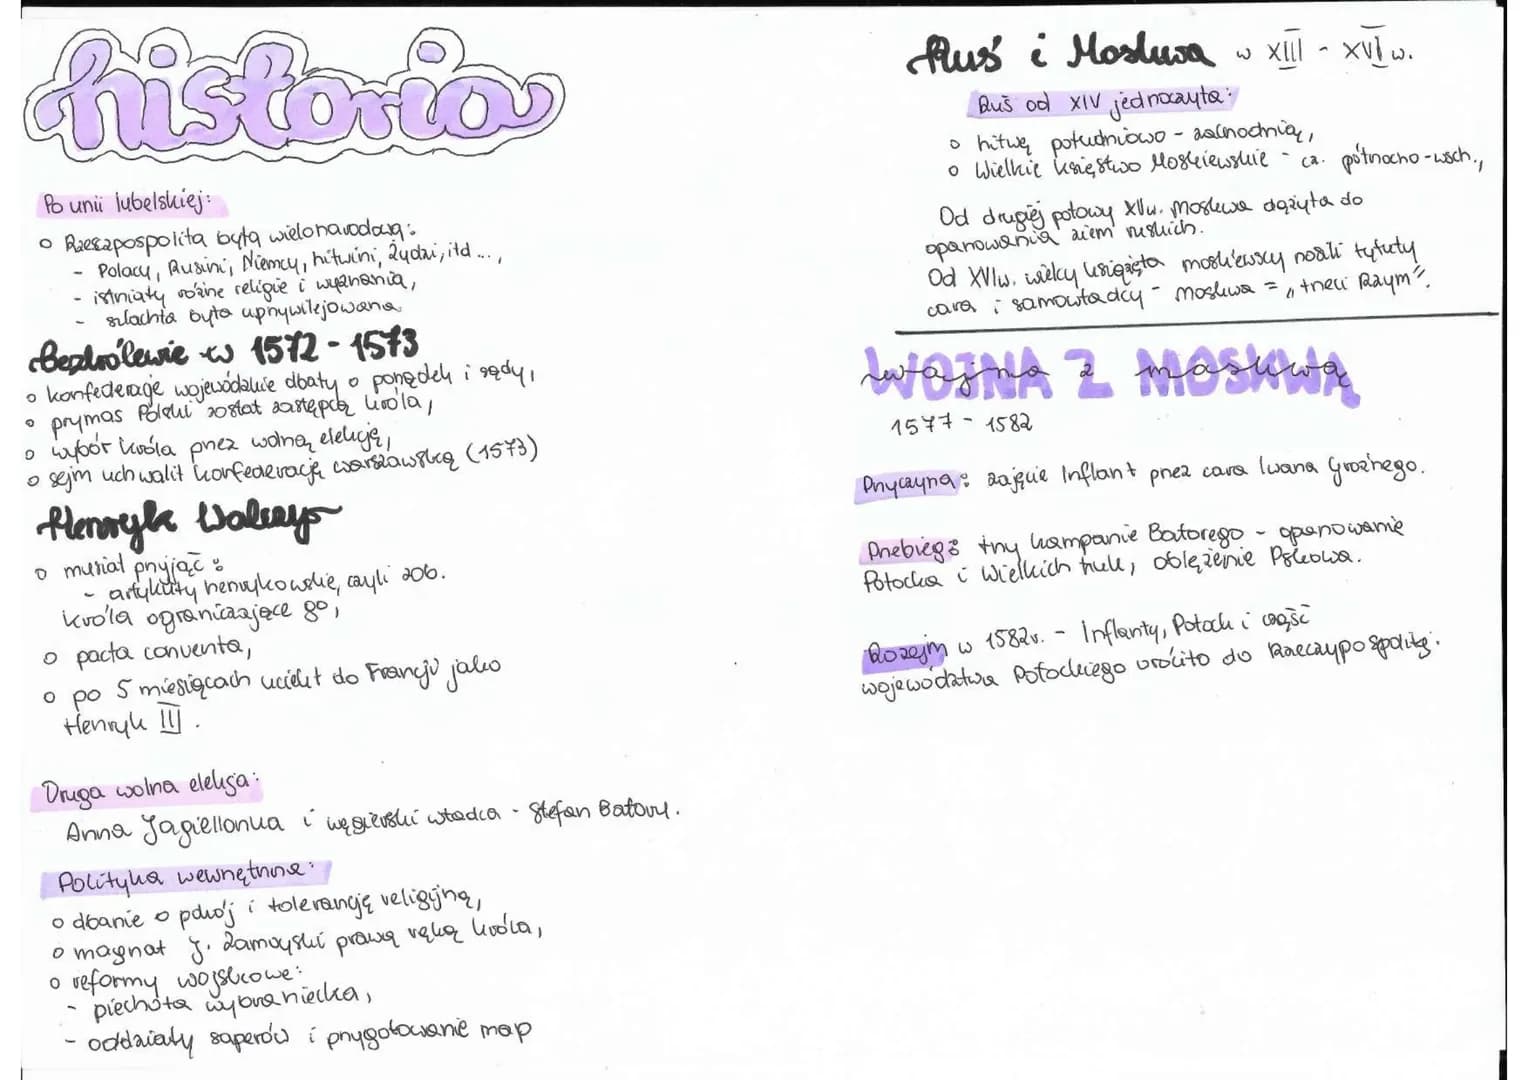 historia
Po unii lubelskiej:
o Rzeszpospolita była wielonarodową:
- Polacy, Rusini, Niemcy, Litwini, Żydzi, itd...,
- istniały różne religie i wyznania,
- szlachta była uprzywilejowana
Bezkrólewie w 1572-1573
o konfederacje wojewódzkie dbały o porządek i sądy,
o prymas Polski został zastępcą króla,
o wybór króla przez wolną elekcję,
o sejm uchwalił konfederację warszawską (1573)
Henryk Walezys
o musiał przyjąć:
- artykuły henrykowskie, czyli zob.
króla ograniczające go,
o pacta conventa,
o po 5 miesiącach uciekł do Francji jako
Henryk III.
Druga wolna elekcja:
Anna Jagiellonka i węgierski władca - Stefan Batory.
Polityka wewnętrzna:
o dbanie o pokój i tolerancję religijną,
o magnat J. Zamoyski prawą ręką króla,
o reformy wojskowe:
- piechota wybraniecka,
- oddziały saperów i przygotowanie map
Ruś i Moskwa w XIII - XVI w.
Ruś od XIV jednoczyła:
o Litwę południowo-zachodnią,
o Wielkie księstwo Moskiewskie - cz. północno-wsch.,
Od drugiej połowy XVw. Moskwa dążyła do
opanowania ziem ruskich.
Od XVIw. wielcy książęta moskiewscy nosili tytuły
cara i samowładcy - Moskwa = „trzeci Rzym".
WOJNA Z MOSKWĄ
1577 - 1582
Przyczyna: zajęcie Inflant przez cara Iwana Groźnego.
Przebieg: trzy kampanie Batorego - opanowanie
Połocka i Wielkich Łuk, oblężenie Pskowa.
Rozejm w 1582r. - Inflanty, Połock i część
województwa Połockiego wróciło do Rzeczypospolitej.